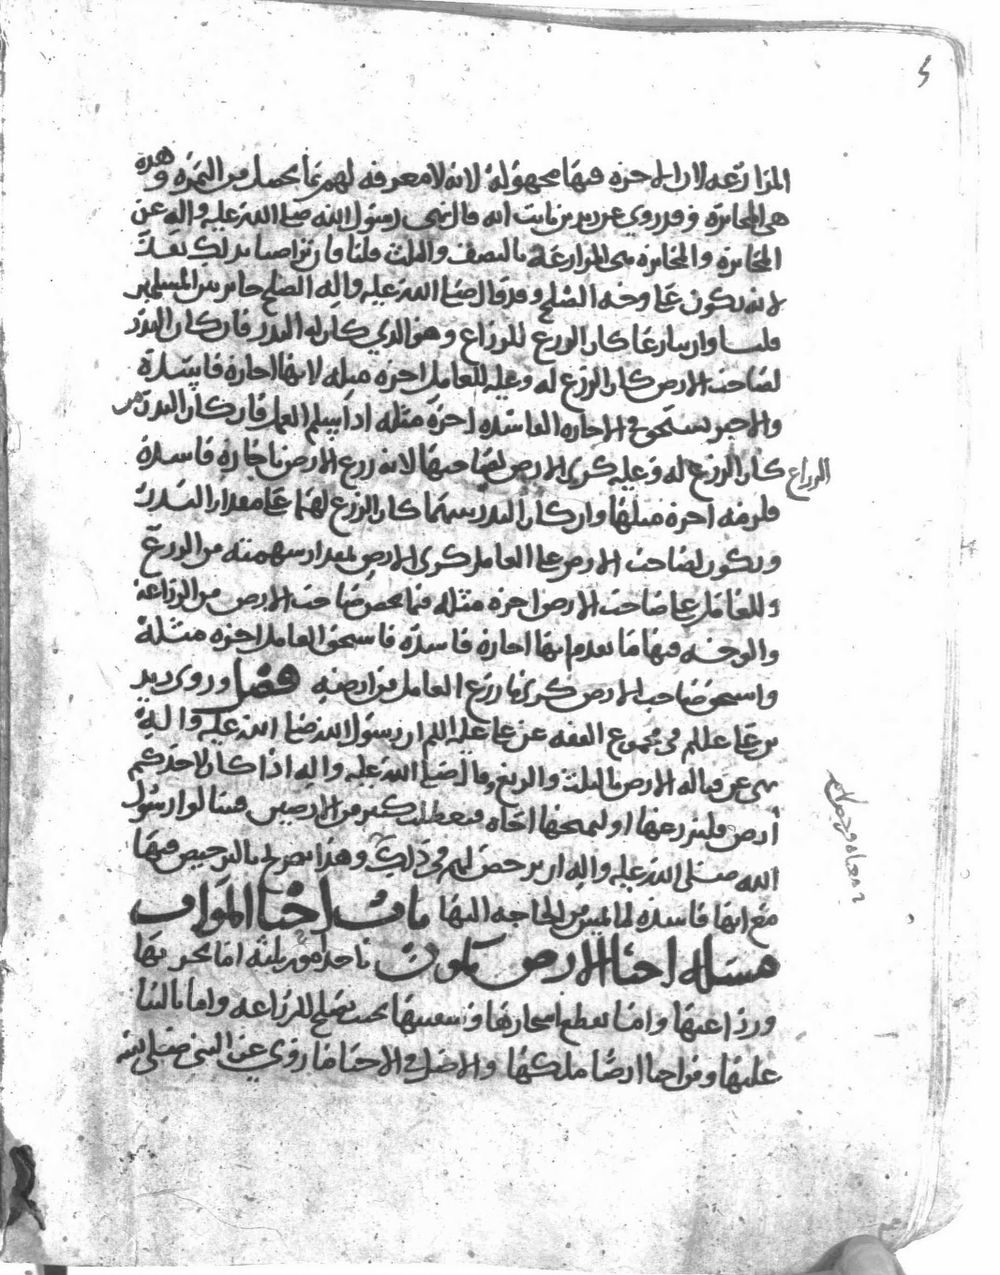 المزارعه لان الاجره فيها مجهوله لانه لا معرفه لهم بما يحصل من الثمره وهذه
هي المخابره وقد روي عن زيد بن ثابت انه قال نهى رسول الله صلى الله عليه واله عن
المخابره والمخابره هي المزارعة بالنصف والثلث قلنا فان تراضيا بذلك
لانه يكون على وجه الصلح وقد قال صلى الله عليه واله الصلح جائز بين المسلمين
كان الزرع للزراع وهو الذي كان له البذر فان كان البذر
لصاحب الارض كان الزرع له وعليه للعامل اجرة مثله لانها اجارة فاسدة
والاجير يستحق في الاجاره الفاسده اجرة مثله اذا سلم العمل فان كان البذر من
الزراع كان الزرع له وعليه كرى الارض لصاحبها لانه زرع الارض باجارة فاسدة
فلزمه اجرة مثلها وان كان البذر بينهما كان الزرع لهما على مقدار البذر
ويكون لصاحب الارض على العامل كرى الارض بمقدار سهمته من الزرع
وللعامل على صاحب الارض اجرة مثله فيما يخص صاحب الارض من الزراعة
والوجه فيها ما تقدم انها اجارة فاسدة فاستحق العامل اجرة مثله
واستحق صاحب الارض كرى ما زرع العامل من ارضه فصل وروى زيد
بن علي عليلم في مجموع الفقه عن علي عليه اللم ان رسول الله صلى الله عليه واله
نهى عن قباله الارض بالثلث والربع وقال صلى الله عليه واله اذا كان لاحدكم
أرض فليزرعها او ليمنحها اخاه فتعطلت كثير من الارضين فسالوا رسول
الله صلى الله عليه واله ان يرخص لهم في ذلك وهذا تصريح بالترخيص فيها
مع انها فاسدة لما الحاجه اليها باب احيا الموات
مسئله احيا الارض يكون باحد امور ثلثه اما بحرثها
وزراعتها واما بقطع اشجارها وتنقيتها بحيث تصلح للزراعه واما بالبنا
عليها ومن احيا ارضا ملكها والاصل في الاحيا ما روي عن النبي صلى الله